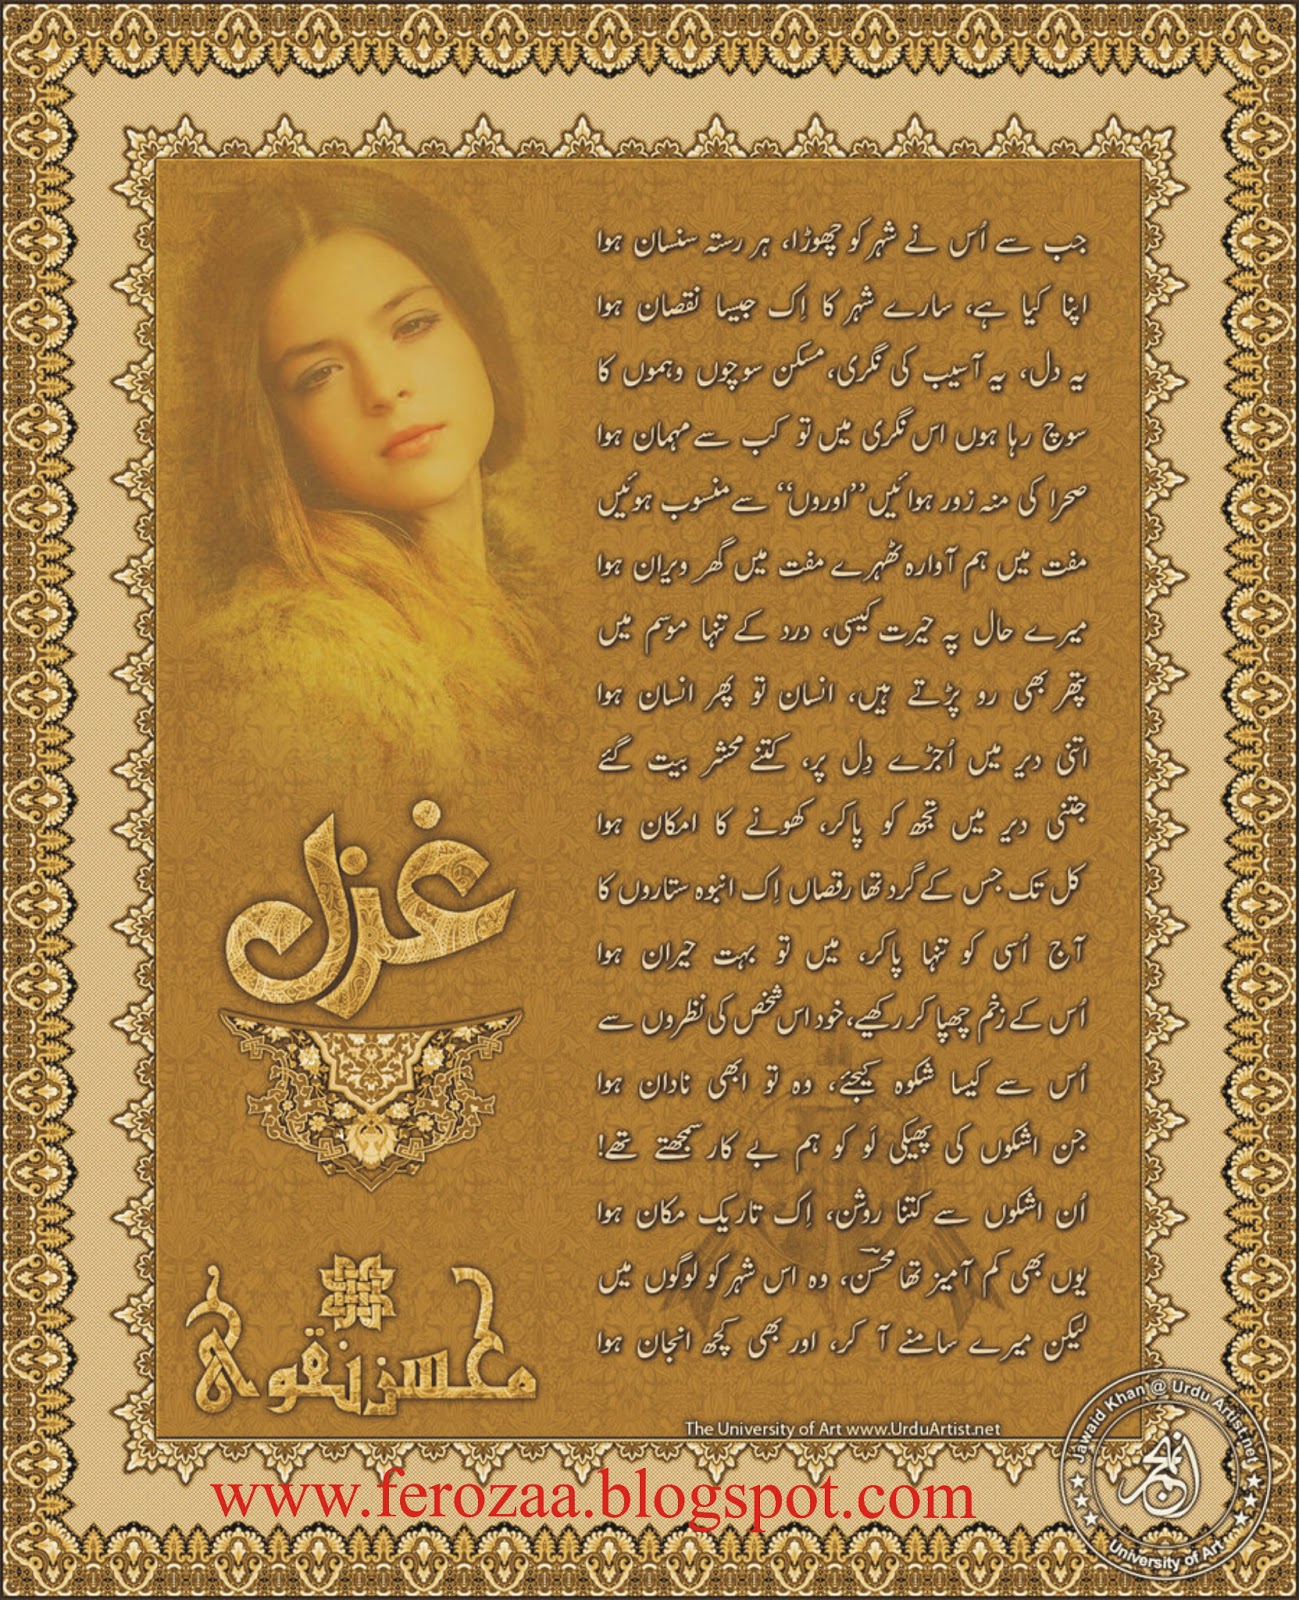 جب سے اُس نے شہر کو چھوڑا، ہر رستہ سنسان ہوا
اپنا کیا ہے، سارے شہر کا اِک جیسا نقصان ہوا
یہ دل، یہ آسیب کی نگری، مسکن سوچوں وہموں کا
سوچ رہا ہوں اس نگری میں تو کب سے مہمان ہوا
صحرا کی منہ زور ہوائیں ”اوروں“ سے منسوب ہوئیں
مفت میں ہم آوارہ ٹھہرے مفت میں گھر ویران ہوا
میرے حال پہ حیرت کیسی، درد کے تنہا موسم میں
پتھر بھی رو پڑتے ہیں، انسان تو پھر انسان ہوا
اتنی دیر میں اُجڑے دِل پر، کتنے محشر بیت گئے
جتنی دیر میں تجھ کو پا کر، کھونے کا امکان ہوا
کل تک جس کے گرد تھا رقصاں اِک انبوہ ستاروں کا
آج اُسی کو تنہا پا کر، میں تو بہت حیران ہوا
اُس کے زخم چھپا کر رکھیے، خود اس شخص کی نظروں سے
اُس سے کیسا شکوہ کیجئے، وہ تو ابھی نادان ہوا
جن اشکوں کی پھیکی لَو کو ہم بے کار سمجھتے تھے!
اُن اشکوں سے کتنا روشن، اِک تاریک مکان ہوا
یوں بھی کم آمیز تھا محسنؔ، وہ اس شہر کو لوگوں میں
لیکن میرے سامنے آ کر، اور بھی کچھ انجان ہوا
غزل
محسن نقوی
The University of Art www.UrduArtist.net
Jawaid Khan @ Urdu Artist.net
University of Art
www.ferozaa.blogspot.com